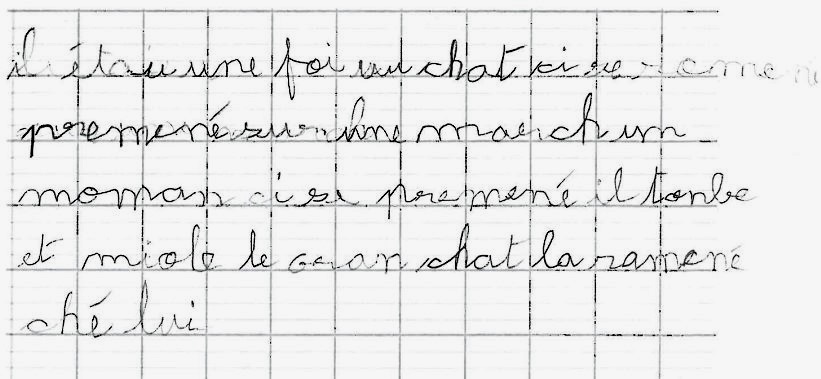 il étau une foi un chat ci se romeni
premené sur une march um
moman ci se premené il tonbe
et miole le gran chat la ramené
ché lui